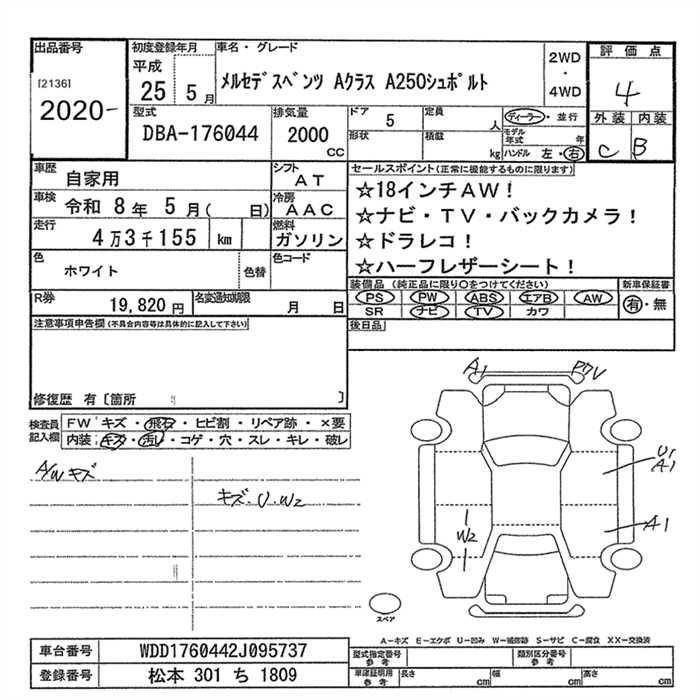 出品番号
[2136]
2020-
初度登録年月
平成
25 5月
車名・グレード
メルセデスベンツ Aクラス A250シュポルト
2WD
・
4WD
評価点
4
外装 内装
C B
型式
DBA-176044
排気量
2000
CC
ドア 5
形状
定員 人
積載 kg
ディーラー・並行
モデル年式 年
ハンドル 左・右
車歴
自家用
シフト
AT
車検
令和 8年 5月( 日)
冷房
AAC
走行
4万3千155 km
燃料
ガソリン
色
ホワイト
色替
色コード
R券
19,820円
名変通知期限
月 日
セールスポイント(正常に機能するものに限ります)
☆18インチAW!
☆ナビ・TV・バックカメラ!
☆ドラレコ!
☆ハーフレザーシート!
装備品(純正品に限り○をつけてください)
PS PW ABS エアB AW
SR ナビ TV カワ
新車保証書
有・無
後日品
注意事項申告欄(不具合内容等は具体的に記入して下さい)
修復歴 有〔箇所 〕
検査員
記入欄
FW キズ・飛石・ヒビ割・リペア跡・×要
内装:キズ・汚レ・コゲ・穴・スレ・キレ・破レ
A/Wキズ
キズ.U.W2
A1
U1
A1
A1
W2
スペア
A-キズ E-エクボ U-凹み W-補修跡 S-サビ C-腐食 XX-交換済
車台番号
WDD1760442J095737
登録番号
松本 301 ち 1809
型式指定番号
参考
類別区分番号
参考
車庫証明用
参考
長さ cm
幅 cm
高さ cm